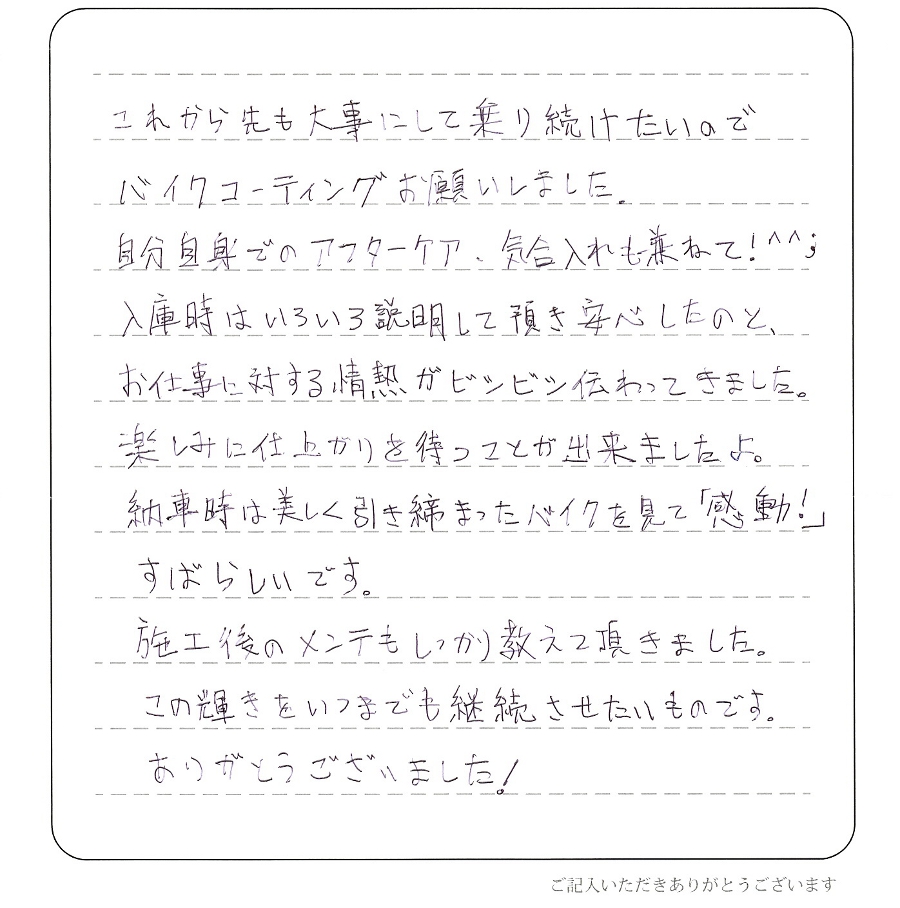 これから先も大事にして乗り続けたいので
バイクコーティングお願いしました。
自分自身でのアフターケア、気合入れも兼ねて!^^;
入庫時はいろいろ説明して頂き安心したのと、
お仕事に対する情熱がビシビシ伝わってきました。
楽しみに仕上がりを待つことが出来ましたよ。
納車時は美しく引き締まったバイクを見て「感動!」
すばらしいです。
施工後のメンテもしっかり教えて頂きました。
この輝きをいつまでも継続させたいものです。
ありがとうございました!
ご記入いただきありがとうございます